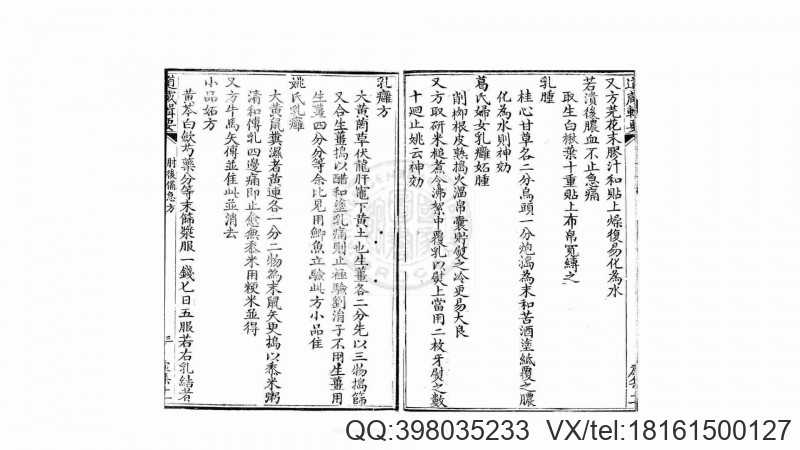 道藏輯要
又方芫花末膠汁和貼上燥復易化為水
若潰後膿血不止急痛
取生白楸葉十重貼上布帛寬縛之
乳腫
桂心甘草各二分烏頭一分炮搗為末和苦酒塗紙覆之膿
化為水則神効
葛氏婦女乳癰妬腫
削柳根皮熟搗火温帛囊貯熨之冷更易大良
又方取研米槌煮令沸絮中覆乳以熨上當用二枚牙熨之數
十廻止姚云神効
乳癰方
大黄𦬸草伏龍肝竈下黄土也生薑各二分先以三物搗篩
又合生薑搗以醋和塗乳痛則止極驗劉涓子不用生薑用
生薑四分分等余比見用鯽魚立驗此方小品佳
姚氏乳癰
大黄鼠糞濕者黄連各一分二物為末鼠矢更搗以黍米粥
清和傅乳四邊痛即止愈無黍米用粳米並得
又方牛馬矢傅並佳此並消去
小品妬方
黄芩白斂芍藥分等末篩漿服一錢匕日五服若右乳結者
道藏輯要
肘後備急方
三
QQ:398035233 VX/tel:18161500127